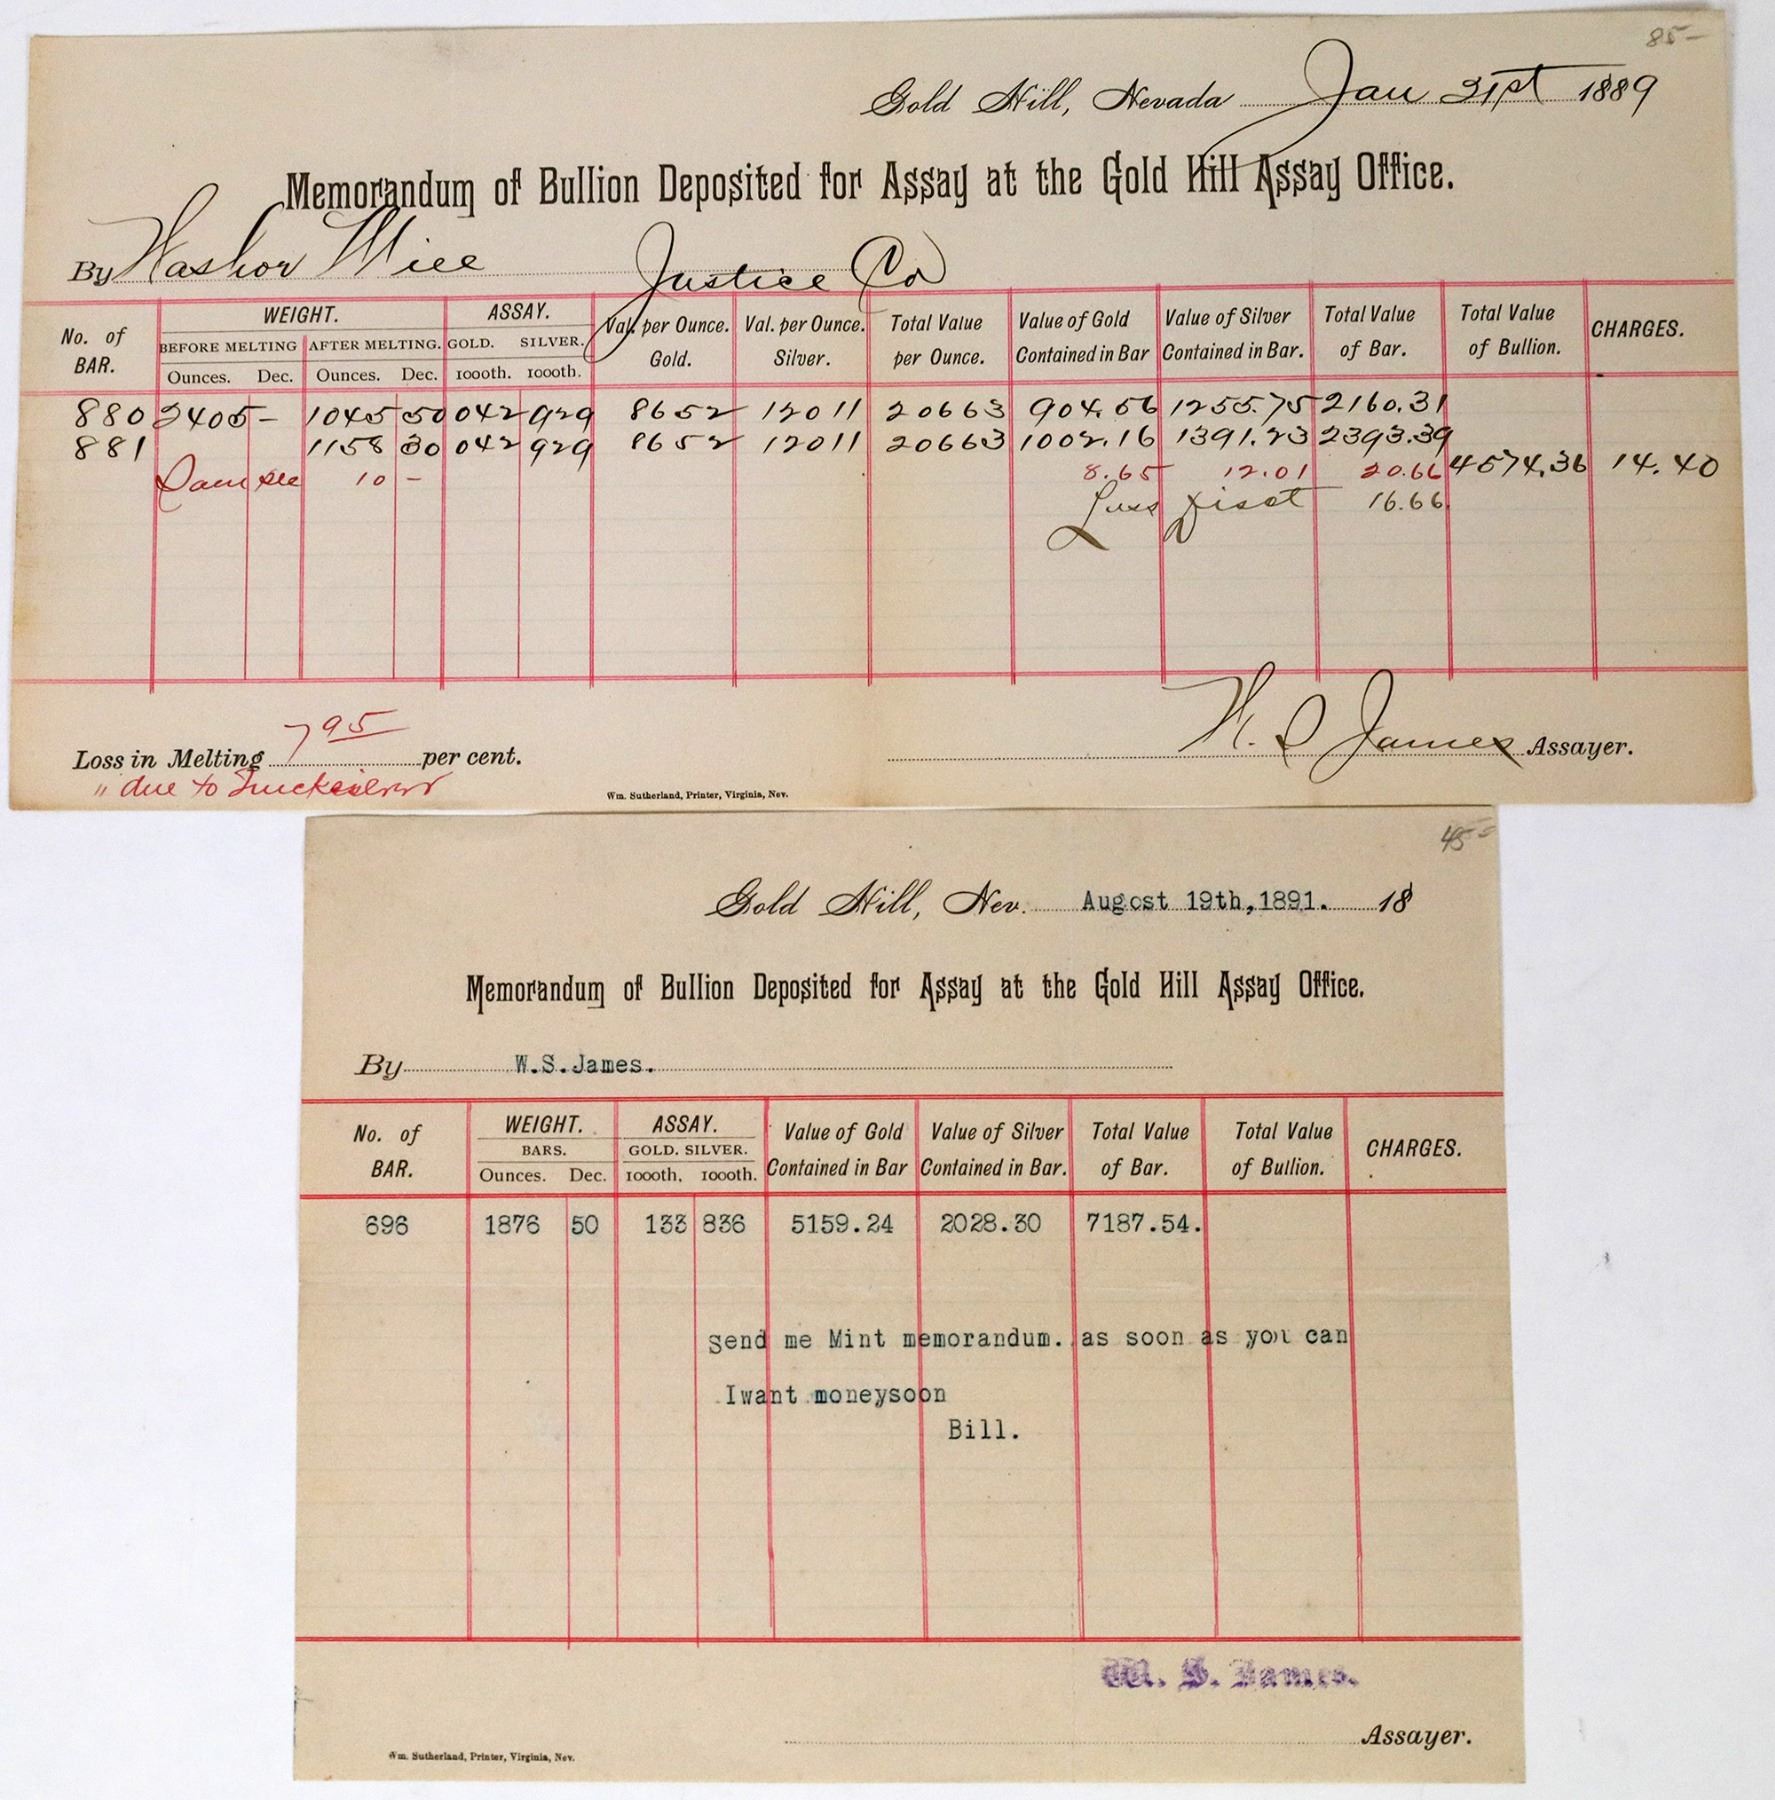 85-
Gold Hill, Nevada Jan 31st 1889
Memorandum of Bullion Deposited for Assay at the Gold Hill Assay Office.
By
Justice Co
No. of BAR. WEIGHT. BEFORE MELTING Ounces. Dec. AFTER MELTING. Ounces. Dec. ASSAY. GOLD. 1000th. SILVER. 1000th. Val. per Ounce. Gold. Val. per Ounce. Silver. Total Value per Ounce. Value of Gold Contained in Bar Value of Silver Contained in Bar. Total Value of Bar. Total Value of Bullion. CHARGES.
880 2405 - 1045 50 042 929 8652 12011 20663 904.56 1255.75 2160.31
881 1158 30 042 929 8652 12011 20663 1002.16 1391.23 2393.39
10 - 8.65 12.01 20.66 4574.36 14.40
16.66
Loss in Melting 795 per cent.
" due to Quicksilver
W. S James Assayer.
Wm. Sutherland, Printer, Virginia, Nev.
45-
Gold Hill, Nev. Augcst 19th,1891. 18
Memorandum of Bullion Deposited for Assay at the Gold Hill Assay Office.
By W.S.James.
No. of BAR. WEIGHT. BARS. Ounces. Dec. ASSAY. GOLD. SILVER. 1000th. 1000th. Value of Gold Contained in Bar Value of Silver Contained in Bar. Total Value of Bar. Total Value of Bullion. CHARGES.
696 1876 50 133 836 5159.24 2028.30 7187.54.
Send me Mint memorandum. as soon as you can
Iwant moneysoon
Bill.
W. S. James.
Assayer.
Wm. Sutherland, Printer, Virginia, Nev.